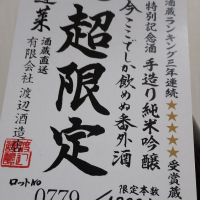 酒蔵ランキング三年連続★★★★★受賞蔵
特別記念酒 手造り純米吟醸
今ここでしか飲めぬ番外酒
超限定
蓬莱
酒蔵直送
有限会社 渡辺酒造
ロットNo
限定本数
0779